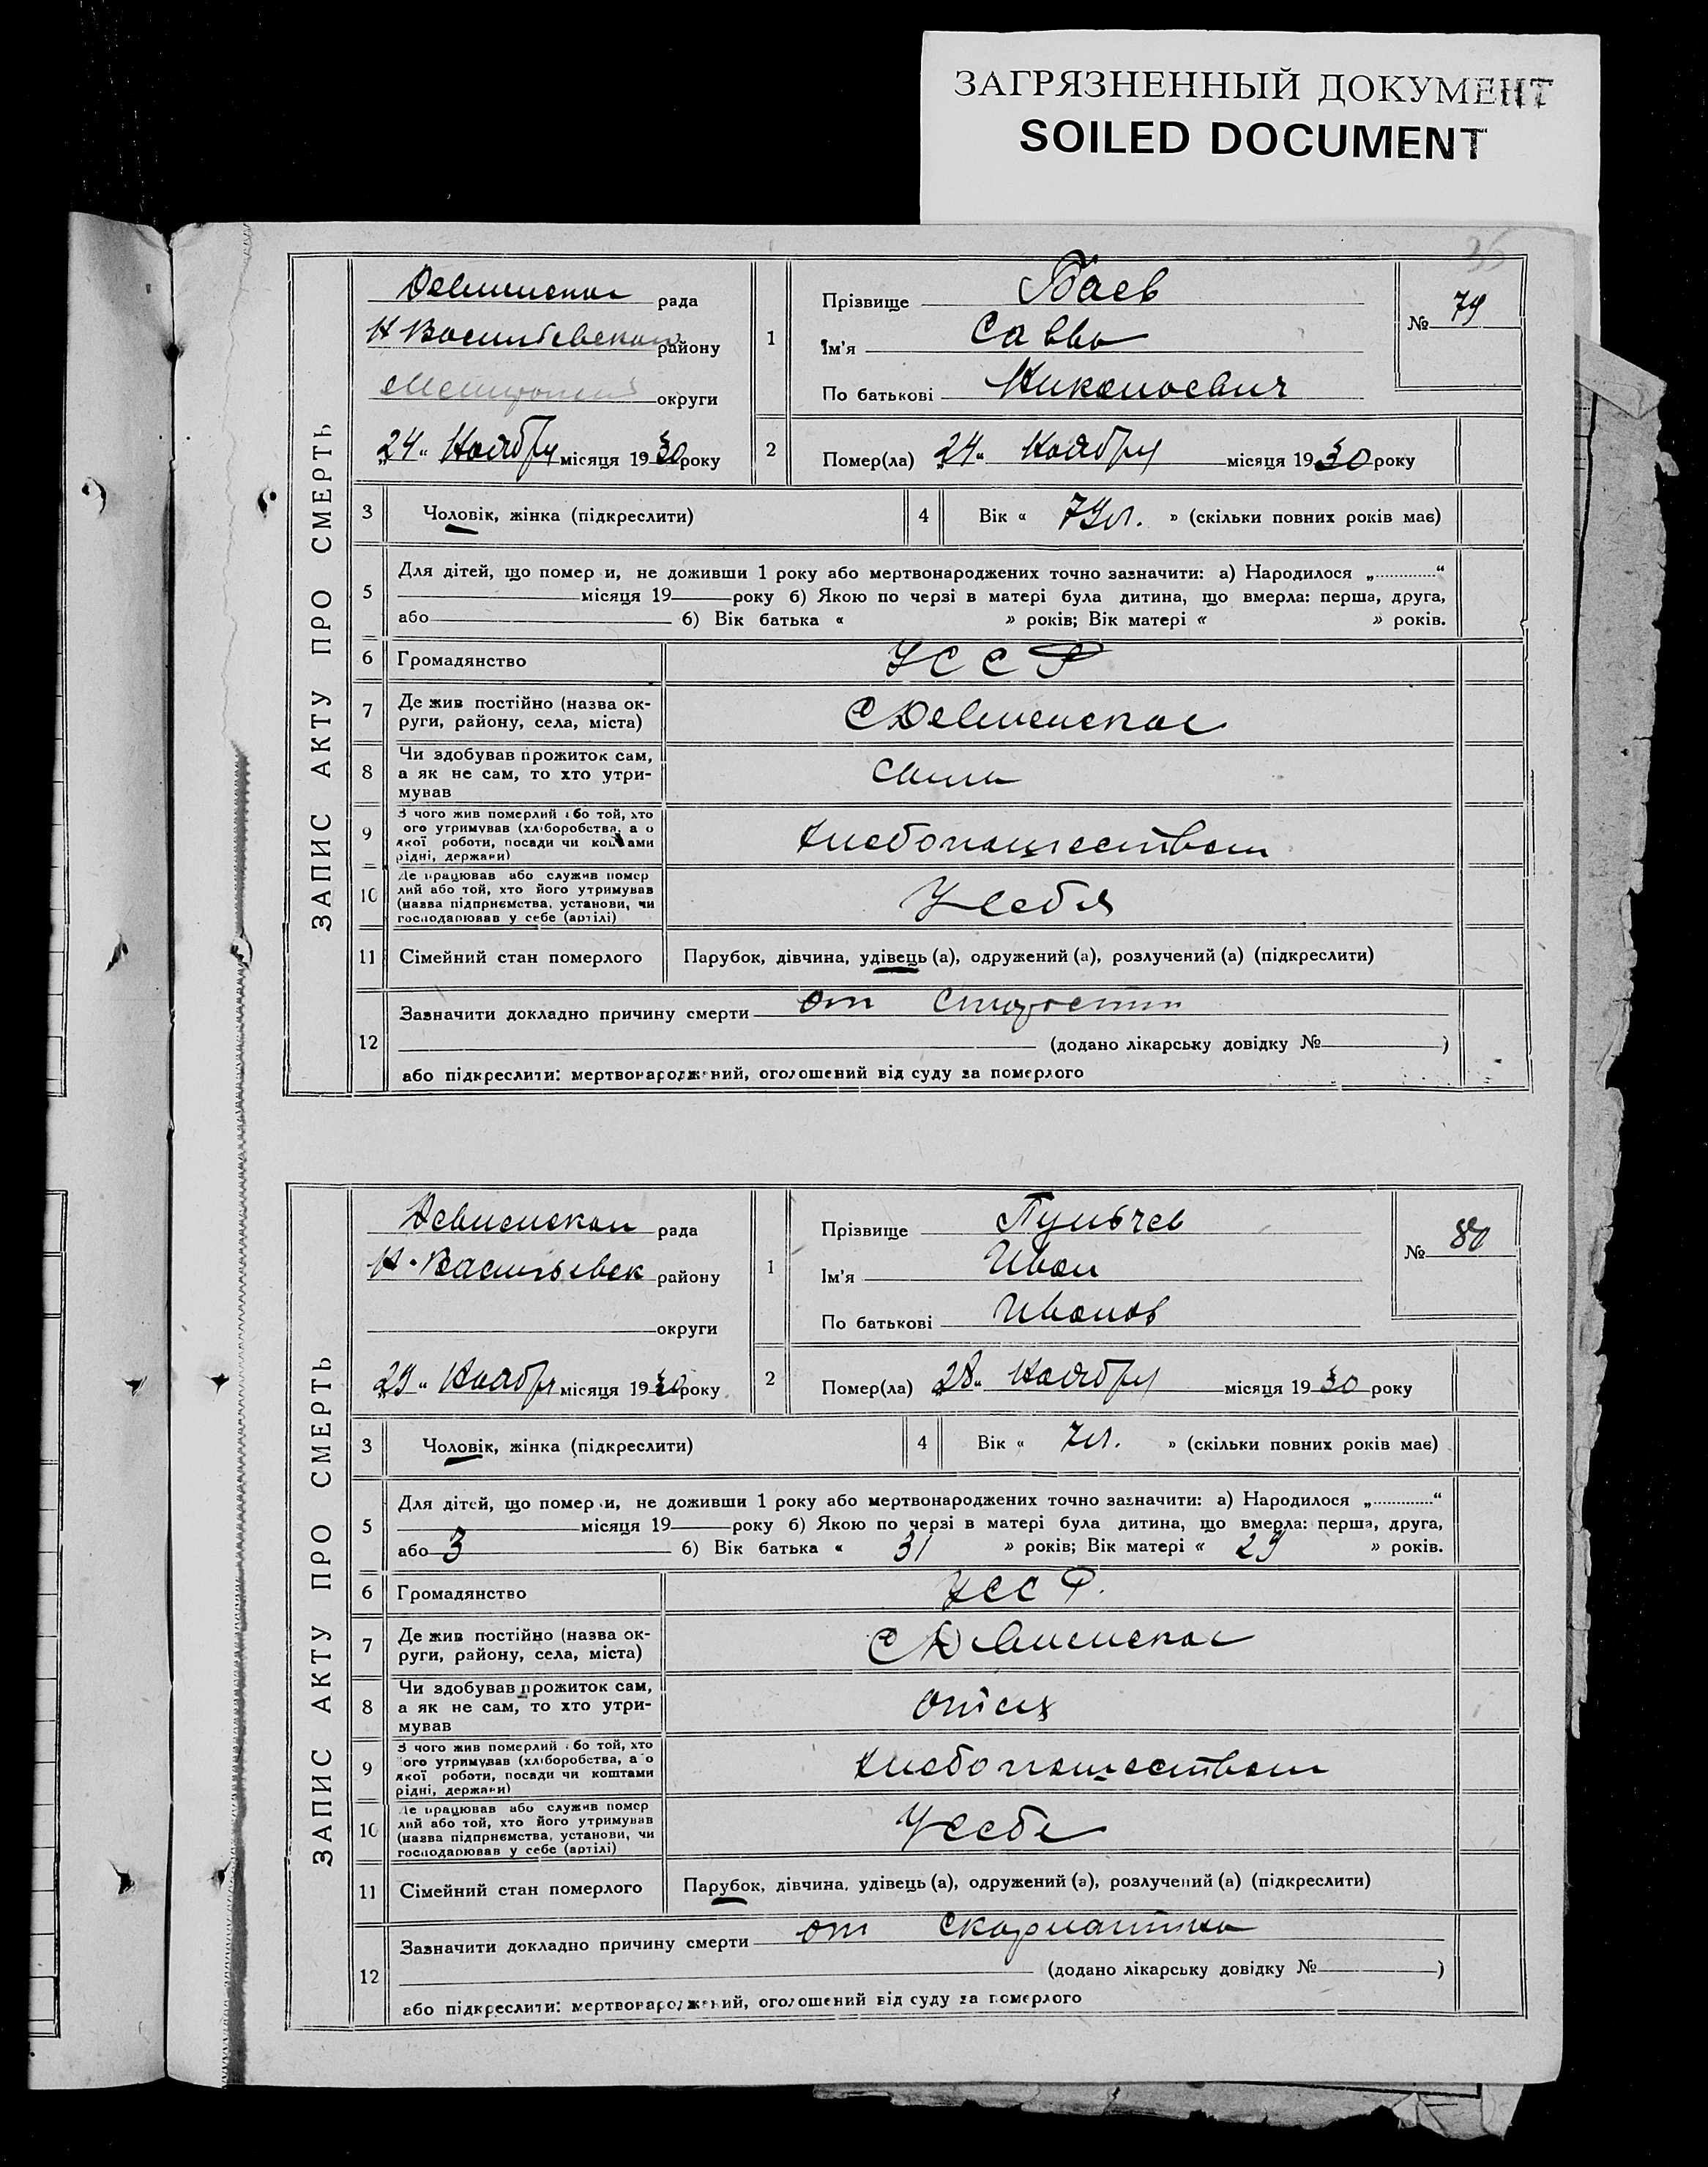 ЗАГРЯЗНЕННЫЙ ДОКУМЕНТ
SOILED DOCUMENT
ЗАПИС АКТУ ПРО СМЕРТЬ
рада
району
округи
„24“ Ноября місяця 1930 року
1
Прізвище Баев
Ім'я Савва
По батькові Николаевич
№ 79
2
Помер(ла) „24“ Ноября місяця 1930 року
3
Чоловік, жінка (підкреслити)
4
Вік « 79 л. » (скільки повних років має)
5
Для дітей, що помер и, не доживши 1 року або мертвонароджених точно зазначити: а) Народилося „ “
місяця 19 року б) Якою по черзі в матері була дитина, що вмерла: перша, друга,
або б) Вік батька « » років; Вік матері « » років.
6
Громадянство УССР
7
Де жив постійно (назва ок-
руги, району, села, міста)
С
8
Чи здобував прожиток сам,
а як не сам, то хто утри-
мував
сам
9
З чого жив померлий або той, хто
ого утримував (хліборобства, а о
якої роботи, посади чи коштами
рідні, держави)
хлебопашеством
10
Де працював або служив помер
лий або той, хто його утримував
(назва підприємства, установи, чи
господарював у себе (артілі)
У себя
11
Сімейний стан померлого
Парубок, дівчина, удівець (а), одружений (а), розлучений (а) (підкреслити)
12
Зазначити докладно причину смерти от старости
(додано лікарську довідку № )
або підкреслити: мертвонароджений, оголошений від суду за померлого
ЗАПИС АКТУ ПРО СМЕРТЬ
рада
Н-Васильевск району
округи
„29“ Ноября місяця 1930 року
1
Прізвище
Ім'я Иван
По батькові Иванов
№ 80
2
Помер(ла) „28“ Ноября місяця 1930 року
3
Чоловік, жінка (підкреслити)
4
Вік « 7 л. » (скільки повних років має)
5
Для дітей, що помер и, не доживши 1 року або мертвонароджених точно зазначити: а) Народилося „ “
місяця 19 року б) Якою по черзі в матері була дитина, що вмерла: перша, друга,
або 3 б) Вік батька « 31 » років; Вік матері « 29 » років.
6
Громадянство УССР.
7
Де жив постійно (назва ок-
руги, району, села, міста)
С
8
Чи здобував прожиток сам,
а як не сам, то хто утри-
мував
отец
9
З чого жив померлий або той, хто
ого утримував (хліборобства, а о
якої роботи, посади чи коштами
рідні, держави)
хлебопашеством
10
Де працював або служив помер
лий або той, хто його утримував
(назва підприємства, установи, чи
господарював у себе (артілі)
У себе
11
Сімейний стан померлого
Парубок, дівчина, удівець (а), одружений (а), розлучений (а) (підкреслити)
12
Зазначити докладно причину смерти от скарлатина
(додано лікарську довідку № )
або підкреслити: мертвонароджений, оголошений від суду за померлого